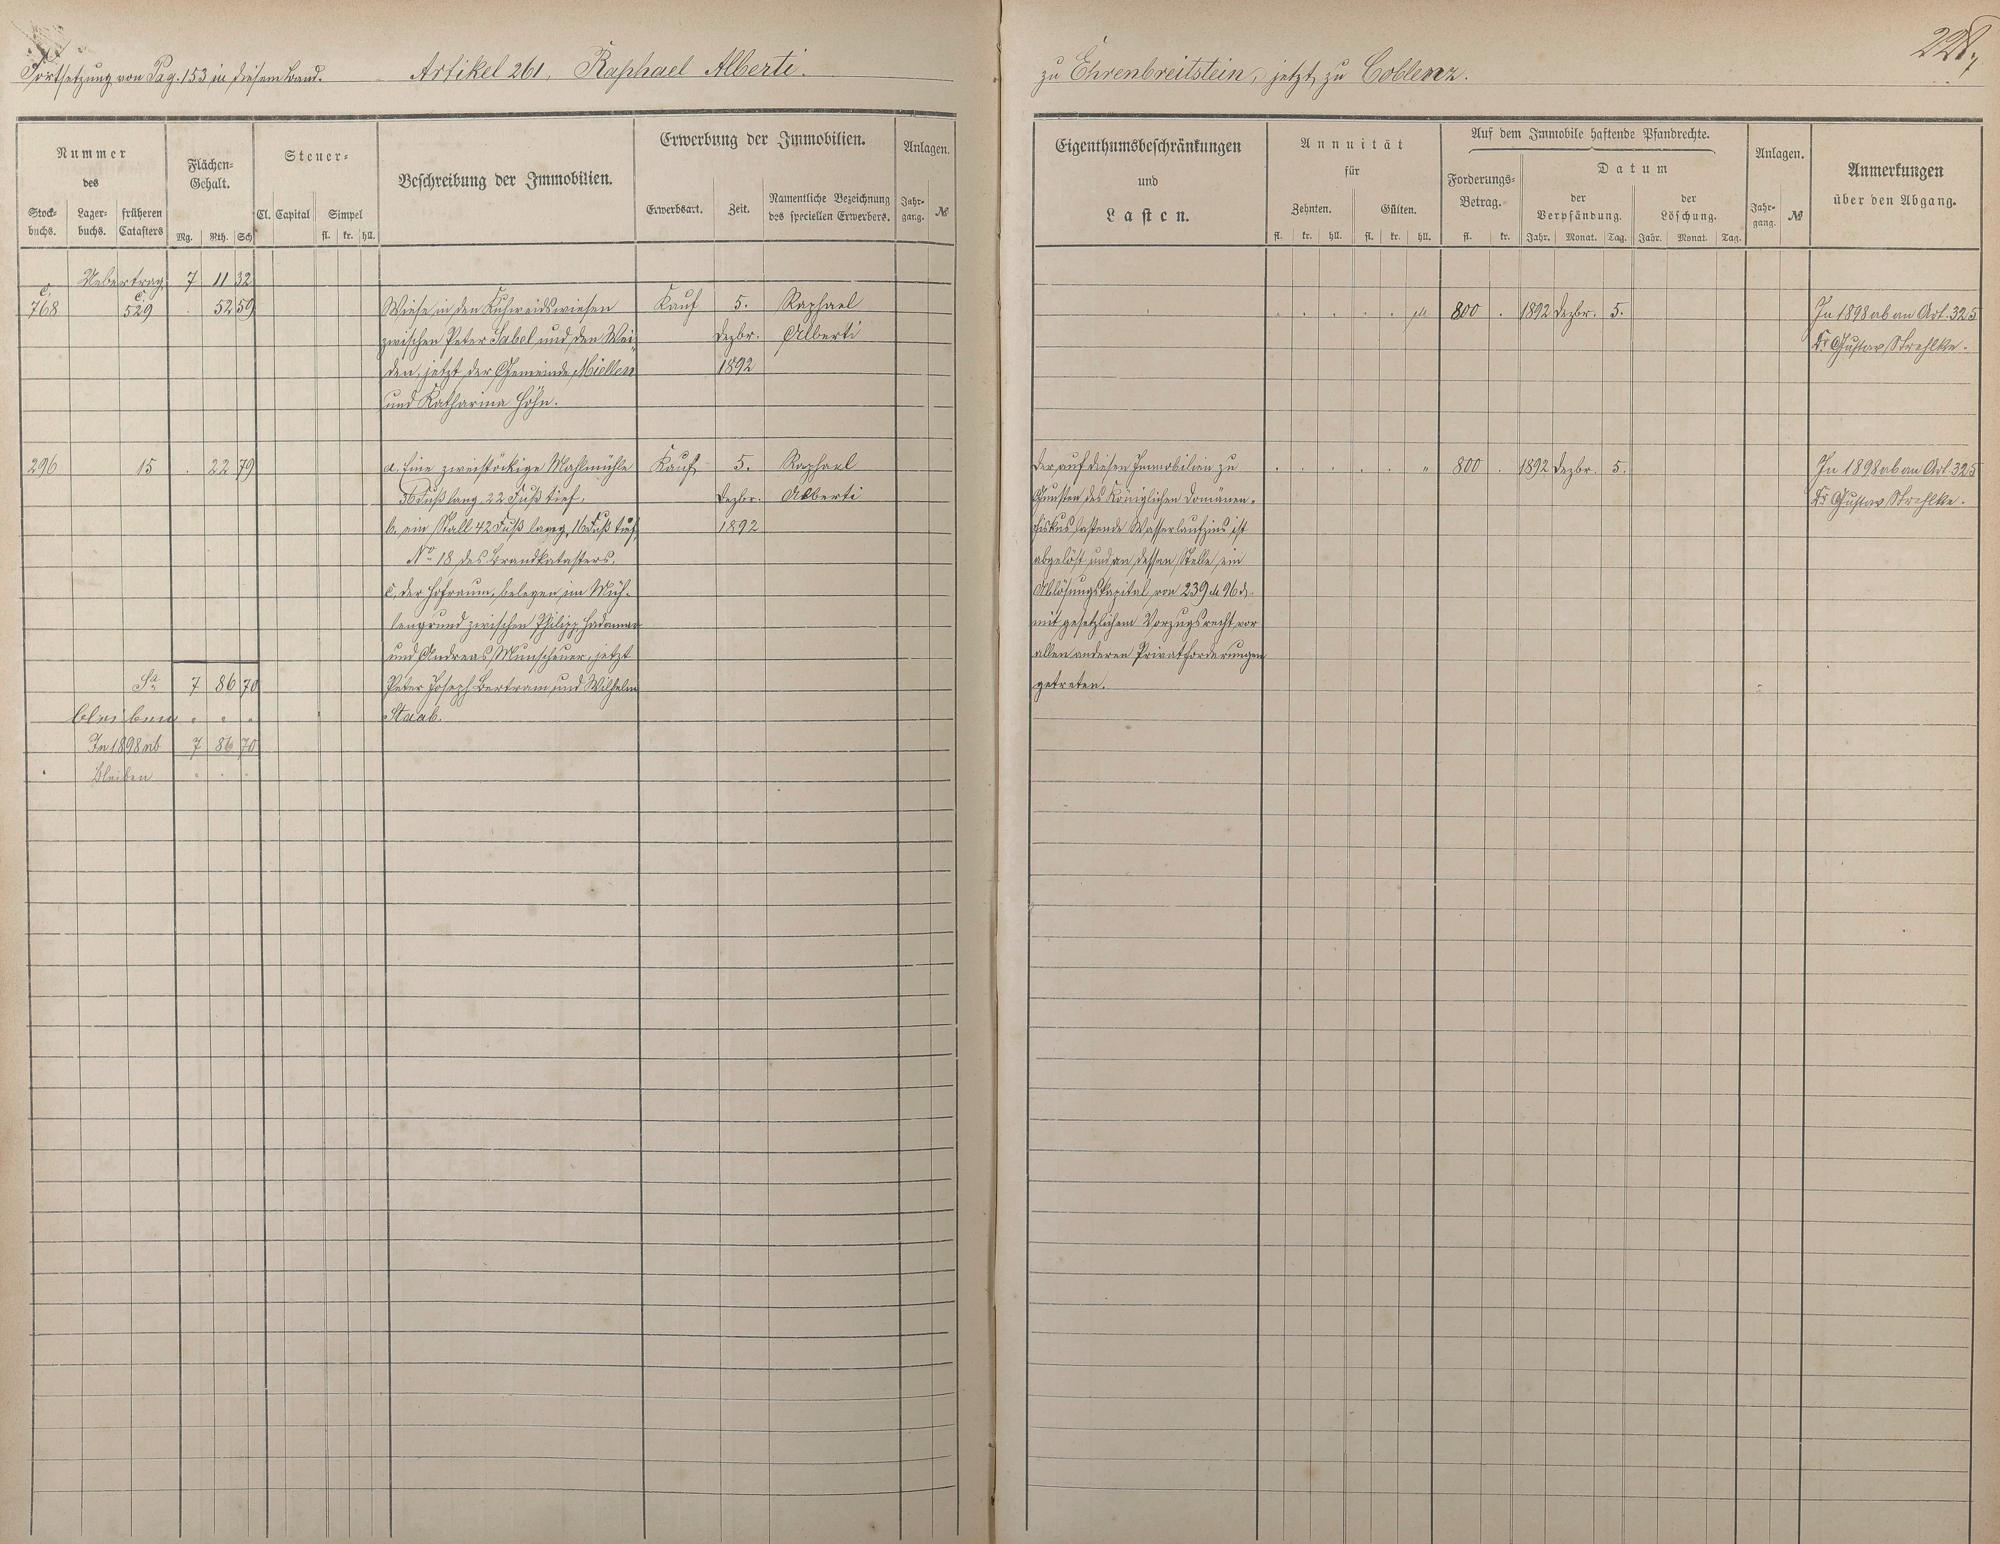 Fortsetzung von Pag. 153 in diesem Band. Artikel 261, Raphael Alberti.
zu Ehrenbreitstein, jetzt zu Coblenz.
Nummer
des
Stock-
buchs.
Lager-
buchs.
früheren
Catasters
Flächen-
Gehalt.
Mg. Rth. Sch
Steuer-
Cl. Capital Simpel
fl. kr. hll.
Beschreibung der Immobilien.
Erwerbung der Immobilien.
Erwerbsart. Zeit. Namentliche Bezeichnung
des speciellen Erwerbers.
Anlagen.
Jahr-
gang. №
Uebertrag 7 11 32
c. 768 c. 529 . 52 59 Wiese in den Kuhweidswiesen Kauf 5. Raphael
zwischen Peter Sabel und den Wei- Dezbr. Alberti
den, jetzt der Gemeinde Miellen 1892
und Katharina Höhn.
296 15 . 22 79 a. Eine zweistöckige Mahlmühle Kauf 5. Raphael
36 Fuß lang, 22 Fuß tief, Dezbr. Alberti
b. ein Stall 42 Fuß lang, 16 Fuß tief, 1892
No 18 des Brandkatasters,
c. der Hofraum, belegen im Müh-
lengrund zwischen Philipp Hadamar
und Andreas Munscheuer, jetzt
Sa 7 86 70 Peter Joseph Bertram und Wilhelm
bleiben . . . Staab.
In 1898 ab 7 86 70
Bleiben . . .
Eigenthumsbeschränkungen
und
Lasten.
Annuität
für
Zehnten. Gülten.
fl. kr. hll. fl. kr. hll.
Auf dem Immobile haftende Pfandrechte.
Forderungs-
Betrag.
fl. kr.
Datum
der
Verpfändung.
Jahr. Monat. Tag.
der
Löschung.
Jahr. Monat. Tag.
Anlagen.
Jahr-
gang. №
Anmerkungen
über den Abgang.
800 . 1892 Dezbr. 5. In 1898 ab an Art. 325
Dr Gustav Strehlke.
Der auf diesen Immobilien zu 800 . 1892 Dezbr. 5. In 1898 ab an Art. 325
Gunsten des Königlichen Domänen- Dr Gustav Strehlke.
fiskus lastende Wasserlaufzins ist
abgelöst und an dessen Stelle ein
Ablösungskapital von 239 M 96 d.
mit gesetzlichem Vorzugsrecht vor
allen anderen Privatforderungen
getreten.